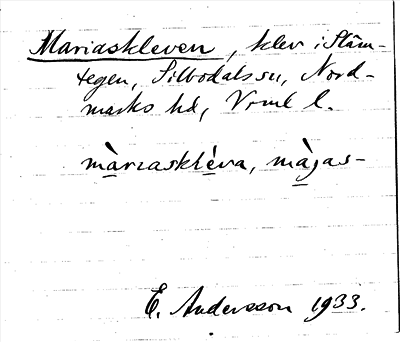 Mariaskleven, klev i Släm-
tegen, Silbodals sn, Nord-
marks hd, Vrml l.
màrıasklèva, màjas-
E. Andersson 1933.